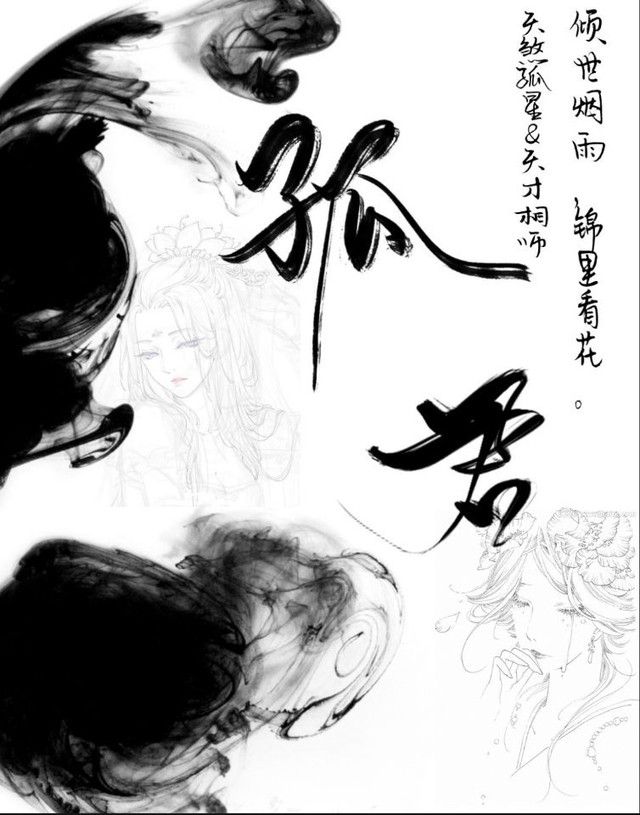 倾世烟雨 锦里看花。
天煞孤星&天才相师
孤
君